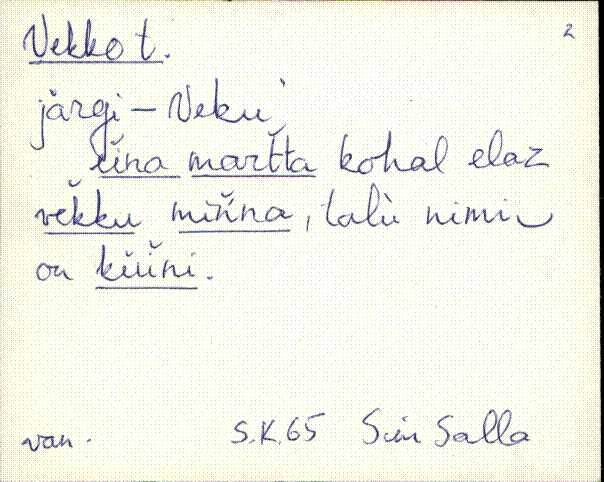 2
Vekko t.
järgi – Veku'
üna martta kohal elaz
vekku minna, talu nimi
on küüni.
van. S.K.65 Suur Salla